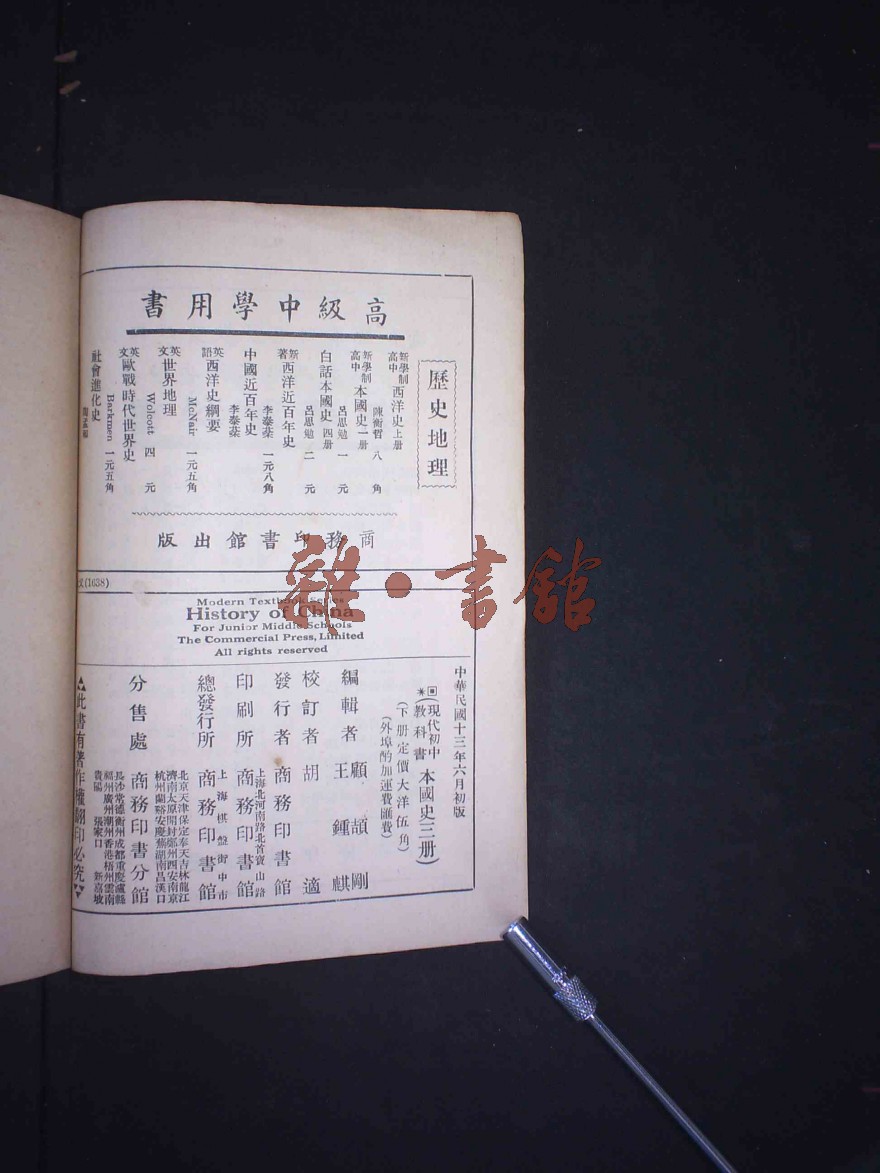 高級中學用書
歷史地理
新學制高中 西洋史 上册 陳衡哲 八角
新學制高中 本國史 一册 呂思勉 一元
白話本國史 四册 呂思勉 二元
新著 西洋近百年史 李泰棻 一元八角
中國近百年史 李泰棻
英語 西洋史綱要 McNair 一元五角
英文 世界地理 Wolcott 四元
英文 歐戰時代世界史 Barkmen 一元五角
社會進化史
商務印書館出版
(1638)
Modern Textbook Series
History of China
For Junior Middle Schools
The Commercial Press, Limited
All rights reserved
中華民國十三年六月初版
(現代初中教科書 本國史三册)
(下册定價大洋伍角)
(外埠酌加運費匯費)
編輯者 顧頡剛 王鍾麒
校訂者 胡適
發行者 商務印書館
印刷所 上海北河南路北首寶山路 商務印書館
總發行所 上海棋盤街中市 商務印書館
分售處 商務印書分館
北京天津保定奉天吉林龍江
濟南太原開封鄭州西安南京
杭州蘭谿安慶蕪湖南昌漢口
長沙常德衡州成都重慶瀘縣
福州廣州潮州香港梧州雲南
貴陽 張家口 新嘉坡
此書有著作權翻印必究
雜·書館